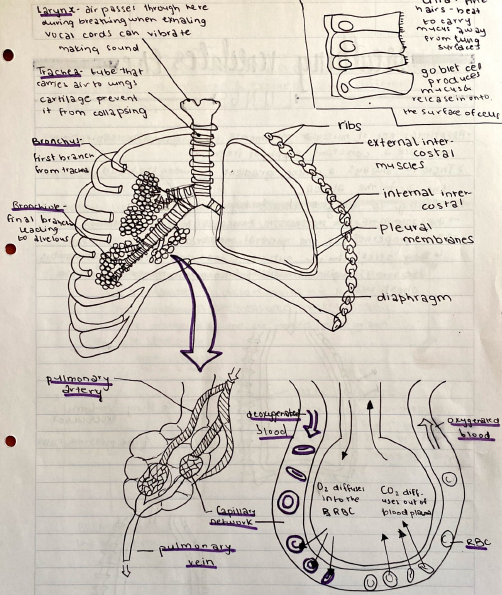 Larynx- air passes through here
during breathing when exhaling
vocal cords can vibrate
making sound
hairs - beat
to carry
mucus away
from lung
surfaces
goblet cell
produces
mucus &
release it onto
the surface of cells
Trachea- tube that
carries air to lungs
cartilage prevent
it from collapsing
Bronchus-
first branch
from trachea
Bronchiole-
final branch
leading
to alveolous
ribs
external inter-
costal
muscles
internal inter-
costal
pleural
membranes
diaphragm
pulmonary
artery
capillary
network
pulmonary
vein
deoxygenated
blood
oxygenated
blood
O2 diffuses
into the
RBC
CO2 diff-
uses out of
blood plasma
RBC